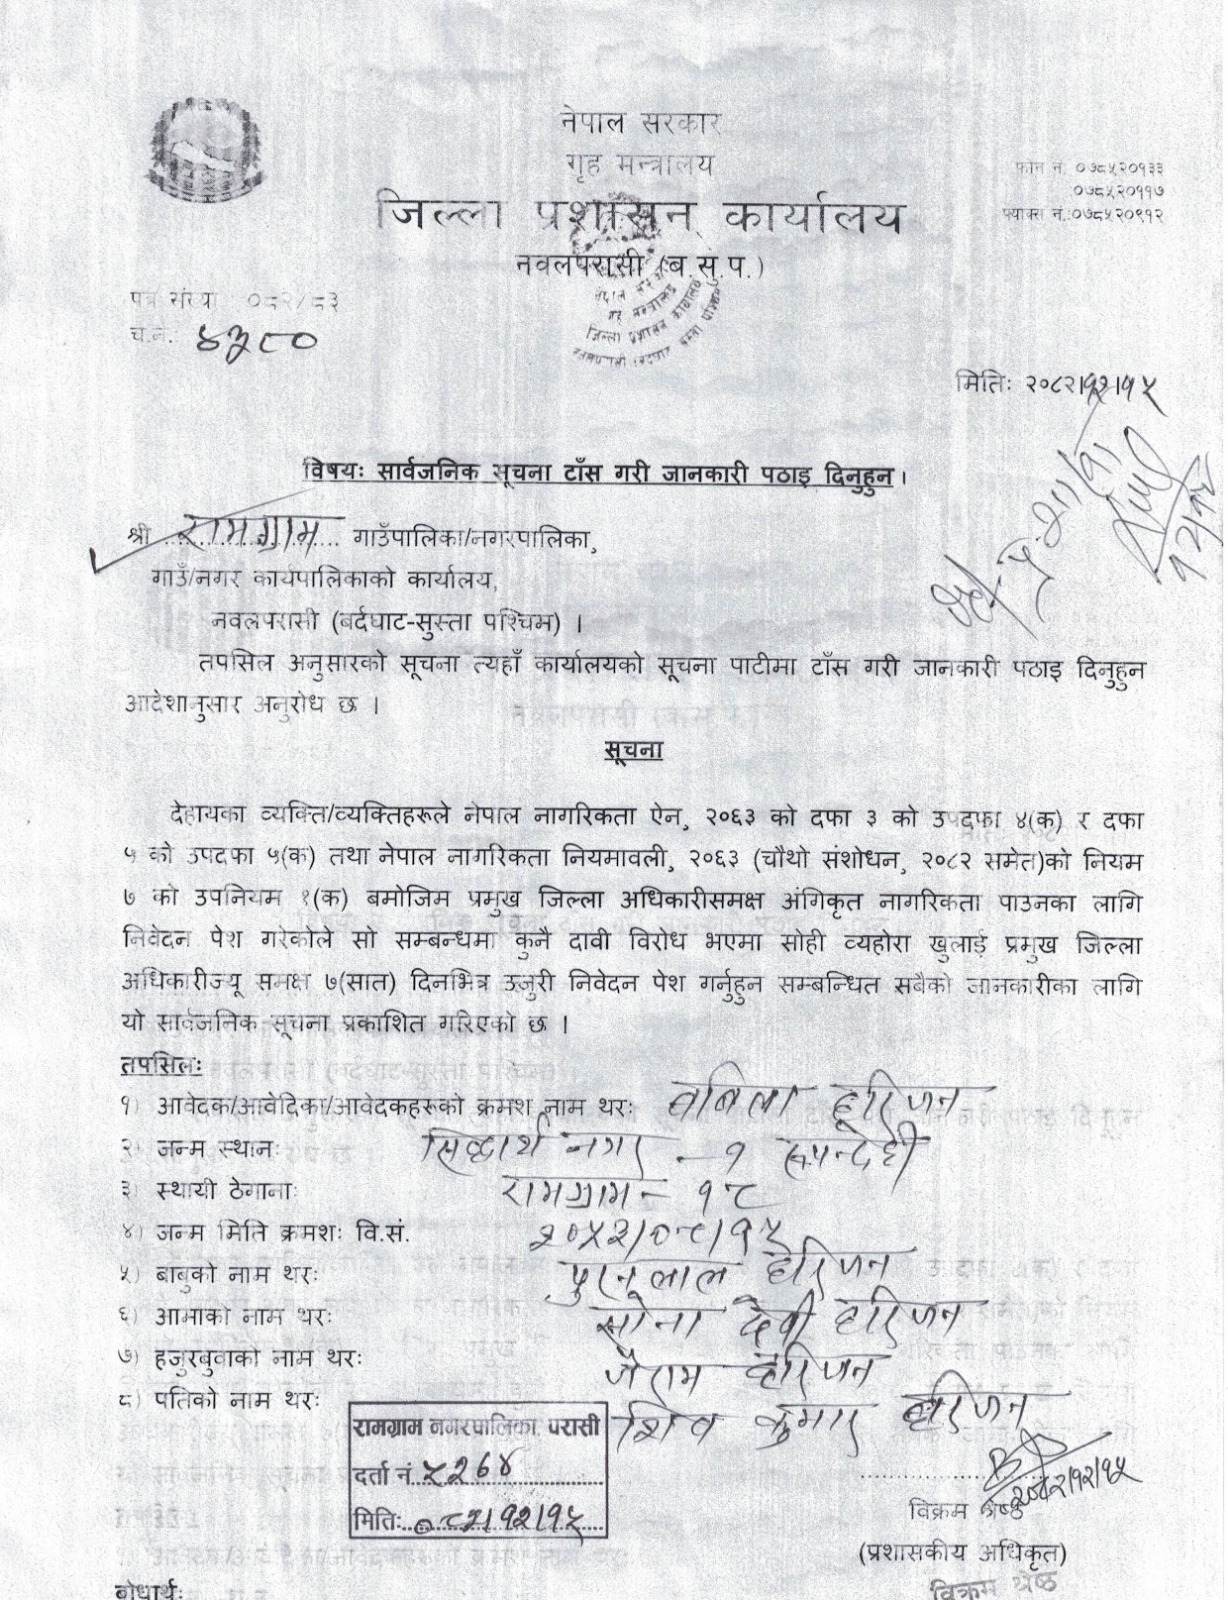 नेपाल सरकार
गृह मन्त्रालय
जिल्ला प्रशासन कार्यालय
नवलपरासी (ब.सु.प.)
फोन नं. ०७८५२०१३३
०७८५२०११७
फ्याक्स नं.:०७८५२०९१२
पत्र संख्या ०८२/८३
च.नं. ४३८०
मितिः २०८२।१२।१५
विषयः सार्वजनिक सूचना टाँस गरी जानकारी पठाइ दिनुहुन ।
श्री रामग्राम गाउँपालिका/नगरपालिका,
गाउँ/नगर कार्यपालिकाको कार्यालय,
नवलपरासी (बर्दघाट-सुस्ता पश्चिम) ।
तपसिल अनुसारको सूचना त्यहाँ कार्यालयको सूचना पाटीमा टाँस गरी जानकारी पठाइ दिनुहुन
आदेशानुसार अनुरोध छ ।
सूचना
देहायका व्यक्ति/व्यक्तिहरूले नेपाल नागरिकता ऐन, २०६३ को दफा ३ को उपदफा ४(क) र दफा
५ को उपदफा ५(क) तथा नेपाल नागरिकता नियमावली, २०६३ (चौथो संशोधन, २०८२ समेत)को नियम
७ को उपनियम १(क) बमोजिम प्रमुख जिल्ला अधिकारीसमक्ष अंगिकृत नागरिकता पाउनका लागि
निवेदन पेश गरेकोले सो सम्बन्धमा कुनै दावी विरोध भएमा सोही व्यहोरा खुलाई प्रमुख जिल्ला
अधिकारीज्यू समक्ष ७(सात) दिनभित्र उजुरी निवेदन पेश गर्नुहुन सम्बन्धित सबैको जानकारीका लागि
यो सार्वजनिक सूचना प्रकाशित गरिएको छ ।
तपसिलः
१) आवेदक/आवेदिका/आवेदकहरूको क्रमश नाम थरः बबिता हरिजन
२) जन्म स्थानः सिद्धार्थ नगर - १ रूपन्देही
३) स्थायी ठेगानाः रामग्राम - १८
४) जन्म मिति क्रमशः वि.सं. २०५३/०८/१५
५) बाबुको नाम थरः पुरनलाल हरिजन
६) आमाको नाम थरः सोना देवी हरिजन
७) हजुरबुवाको नाम थरः जैराम हरिजन
८) पतिको नाम थरः शिव कुमार हरिजन
रामग्राम नगरपालिका, परासी
दर्ता नं. ५२६४
मितिः ०८२/१२/१५
२०८२/१२/१५
विक्रम श्रेष्ठ
(प्रशासकीय अधिकृत)
विक्रम श्रेष्ठ
बोधार्थः